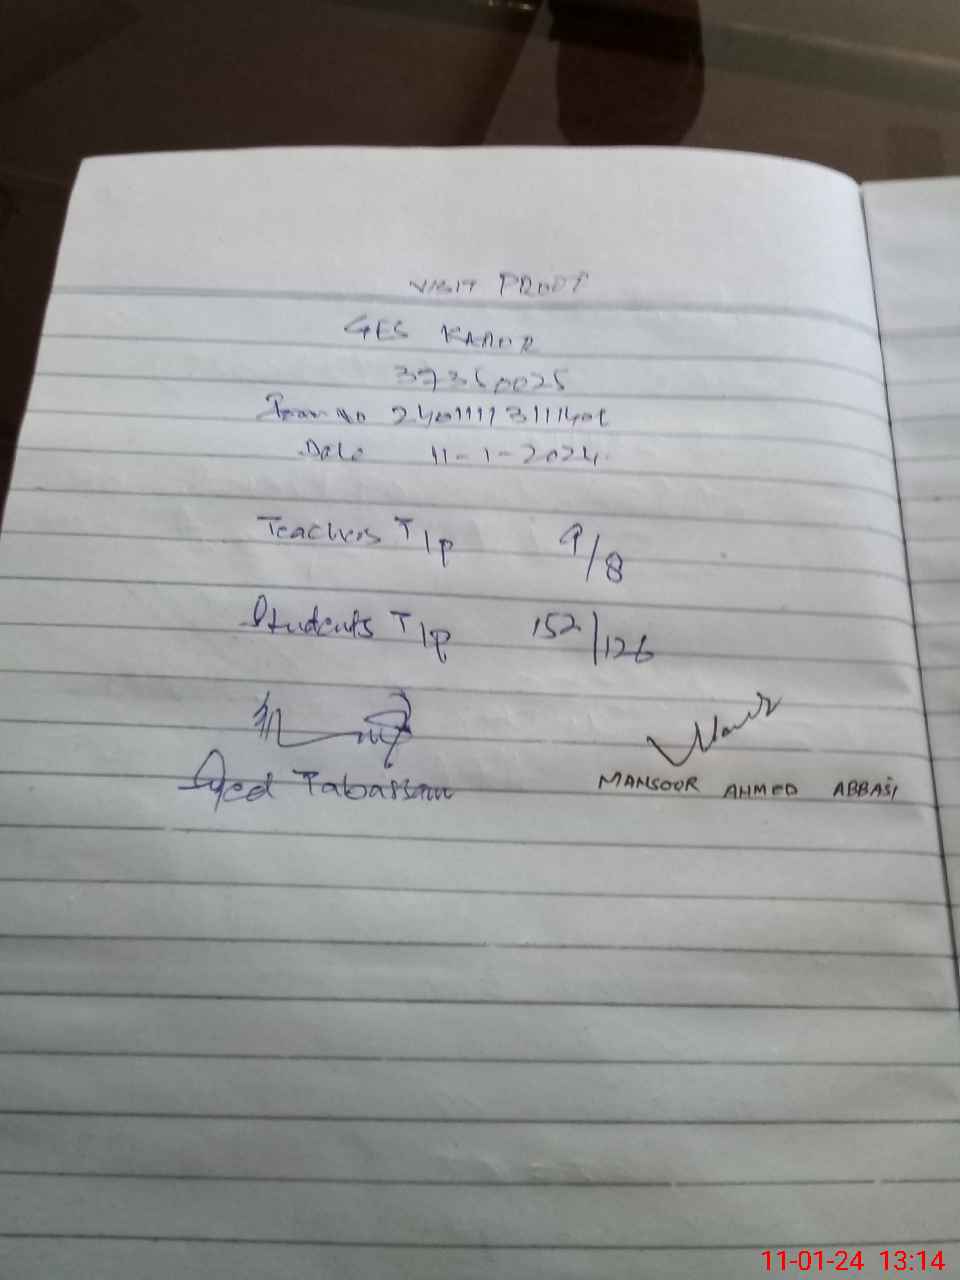 VISIT PROOF
GES KAHUR
37350025
Date 11-1-2024
Teachers T/P 9/8
Students T/P 152/126
Syed Tabassam
MANSOOR AHMED ABBASI
11-01-24 13:14